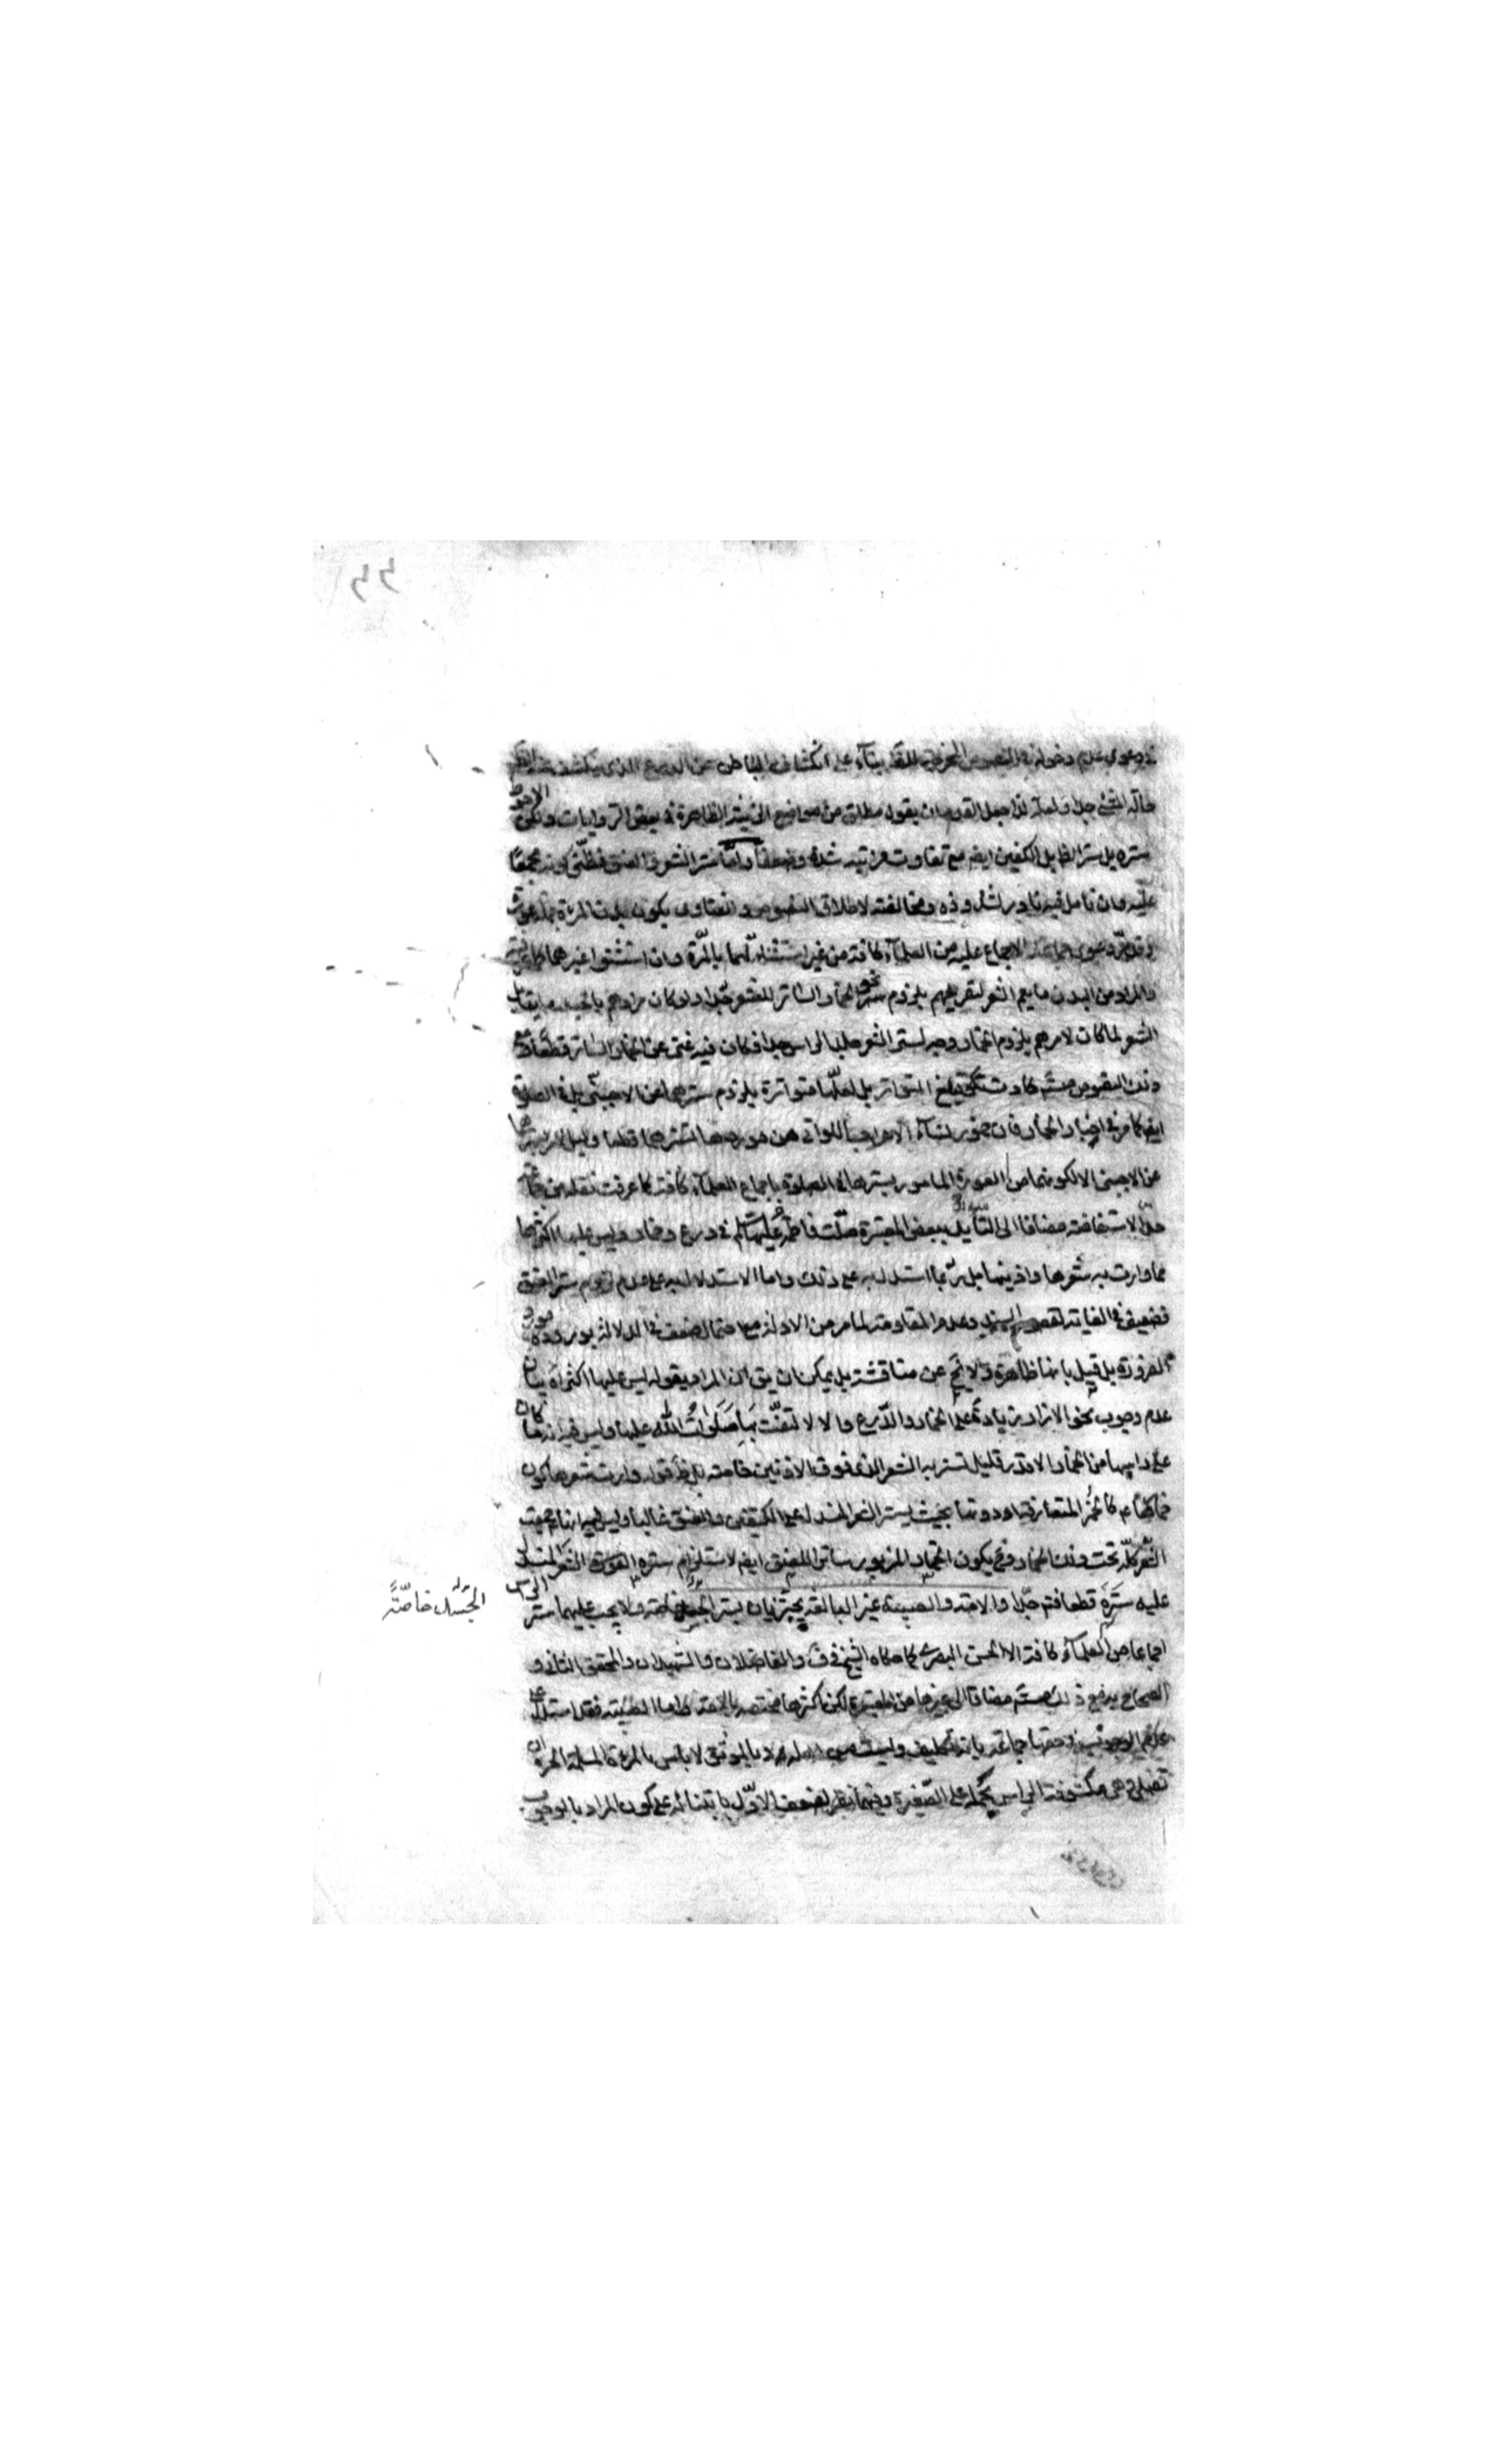 في دعوى عدم دخوله في النصوص المخرجة للقدم بناء على انكشاف الباطن من الدرع الذي ينكشف منه
حالة المشي جدا ولعله لذا جعل القدمان بقول مطلق من مواضع الزينة الظاهرة في بعض الروايات ولكن الاحوط
ستره بل ستر الظاهر بل الكفين ايضا مع تفاوت مرتبته شدة وضعفا واما ستر الشعر والعنق فظنّي كونه مجمعا
عليه وان تامل فيه نادر لشذوذه ومخالفته لاطلاق النصوص والفتاوى بكون بدن المرءة جملة عورة
وقد مر دعوى جماعة الاجماع عليه من العلماء كافة من غير استثناء لهما بالمرّة وان استثنوا غيرهما
والمراد من البدن ما يعم الشعر لتقريعهم بلزوم نحو الخمار الساتر للشعر جدا ولو كان مرادهم بالجسد ما يقابل
الشعر لما كان لامرهم بلزوم الخمار وجه لستر الشعر جلد الراس جدا فكان فيه غنى عن الخمار الساتر قطعا مع
ذلك النصوص مستفيضة كادت تبلغ التواتر بل لعلّها متواترة بلزوم سترهما عن الاجنبي بل في الصلوة
ايضا كما مر في اخبار الخمار فان خمور نساء الاعراب اللواتي هن موردها تسترهما قطعا وليس الامر بسترهما
عن الاجنبي الا لكونهما من العورة المامور بسترها في الصلوة باجماع العلماء كافة كما عرفت نقله من جماعة
حد الاستفاضة مضافا الى التأيد ببعض المعتبرة صلّت فاطمة عليها السلم في درع وخمار وليس عليها اكثر
مما وارت به شعرها واذنيها بل ربّما استدل به على ذلك واما الاستدلال به على عدم لزوم ستر العنق
فضعيف في الغاية لقصور السند وعدم المقاومة لما مر من الادلة مع احتمال ضعف في الدلالة بوروده مورد
الضرورة بل قيل بانها ظاهرة ولا يخ عن مناقشة بل يمكن ان يق ان المراد بقوله ليس عليها اكثر اه بيان
عدم وجوب نحو الازار زيادة على الخمار والدّرع والا لا لتفّت بها صلوات الله عليها وليس فيه انه ما كان
على راسها من الخمار الا قدر قليل تستر به الشعر الذي فوق الاذنين خاصة بل ظ قوله وارت شعرها كون
خمارها كالخمر المتعارفة او دونها بحيث يستر الشعر المنسدل على الكتفين والعنق غالبا وليس فيه انها جمعت
الشّعر كلّه تحت ذلك الخمار وح يكون الخمار المزبور ساترا للعنق ايضا لاستلزام ستره الشعر المنسدل
عليه ستره قطعا فتم جدّا والامة والصبية غير البالغة يجتزيان بستر الجسد خاصة ولا يجب عليهما ستر الراس
الجسد خاصّة
اجماعا من العلماء كافة الا الحسن البصري كما حكاه الشيخ في ف والفاضلان والشهيدان والمحقق الثاني و
الصحاح يدفع ذلك مستفيضة مضافا الى غيرها من المعتبرة لكن اكثرها مختصة بالامة واما الصبية فقد استدل على
عدم الوجوب في حقها جماعة بانه تكليف وليست من اهله بالموثق لا باس بالمرءة المسلمة الحرة ان
تصلي وهي مكشوفة الراس بحمله على الصّغيرة وفيهما نظر لضعف الاوّل بابتنائه على كون المراد بالوجوب